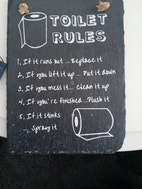 TOILET
RULES
1. If it runs out ... Replace it
2. If you lift it up ... Put it down
3. If you mess it... Clean it up
4. If you're finished... Flush it
5. If it stinks
... Spray it